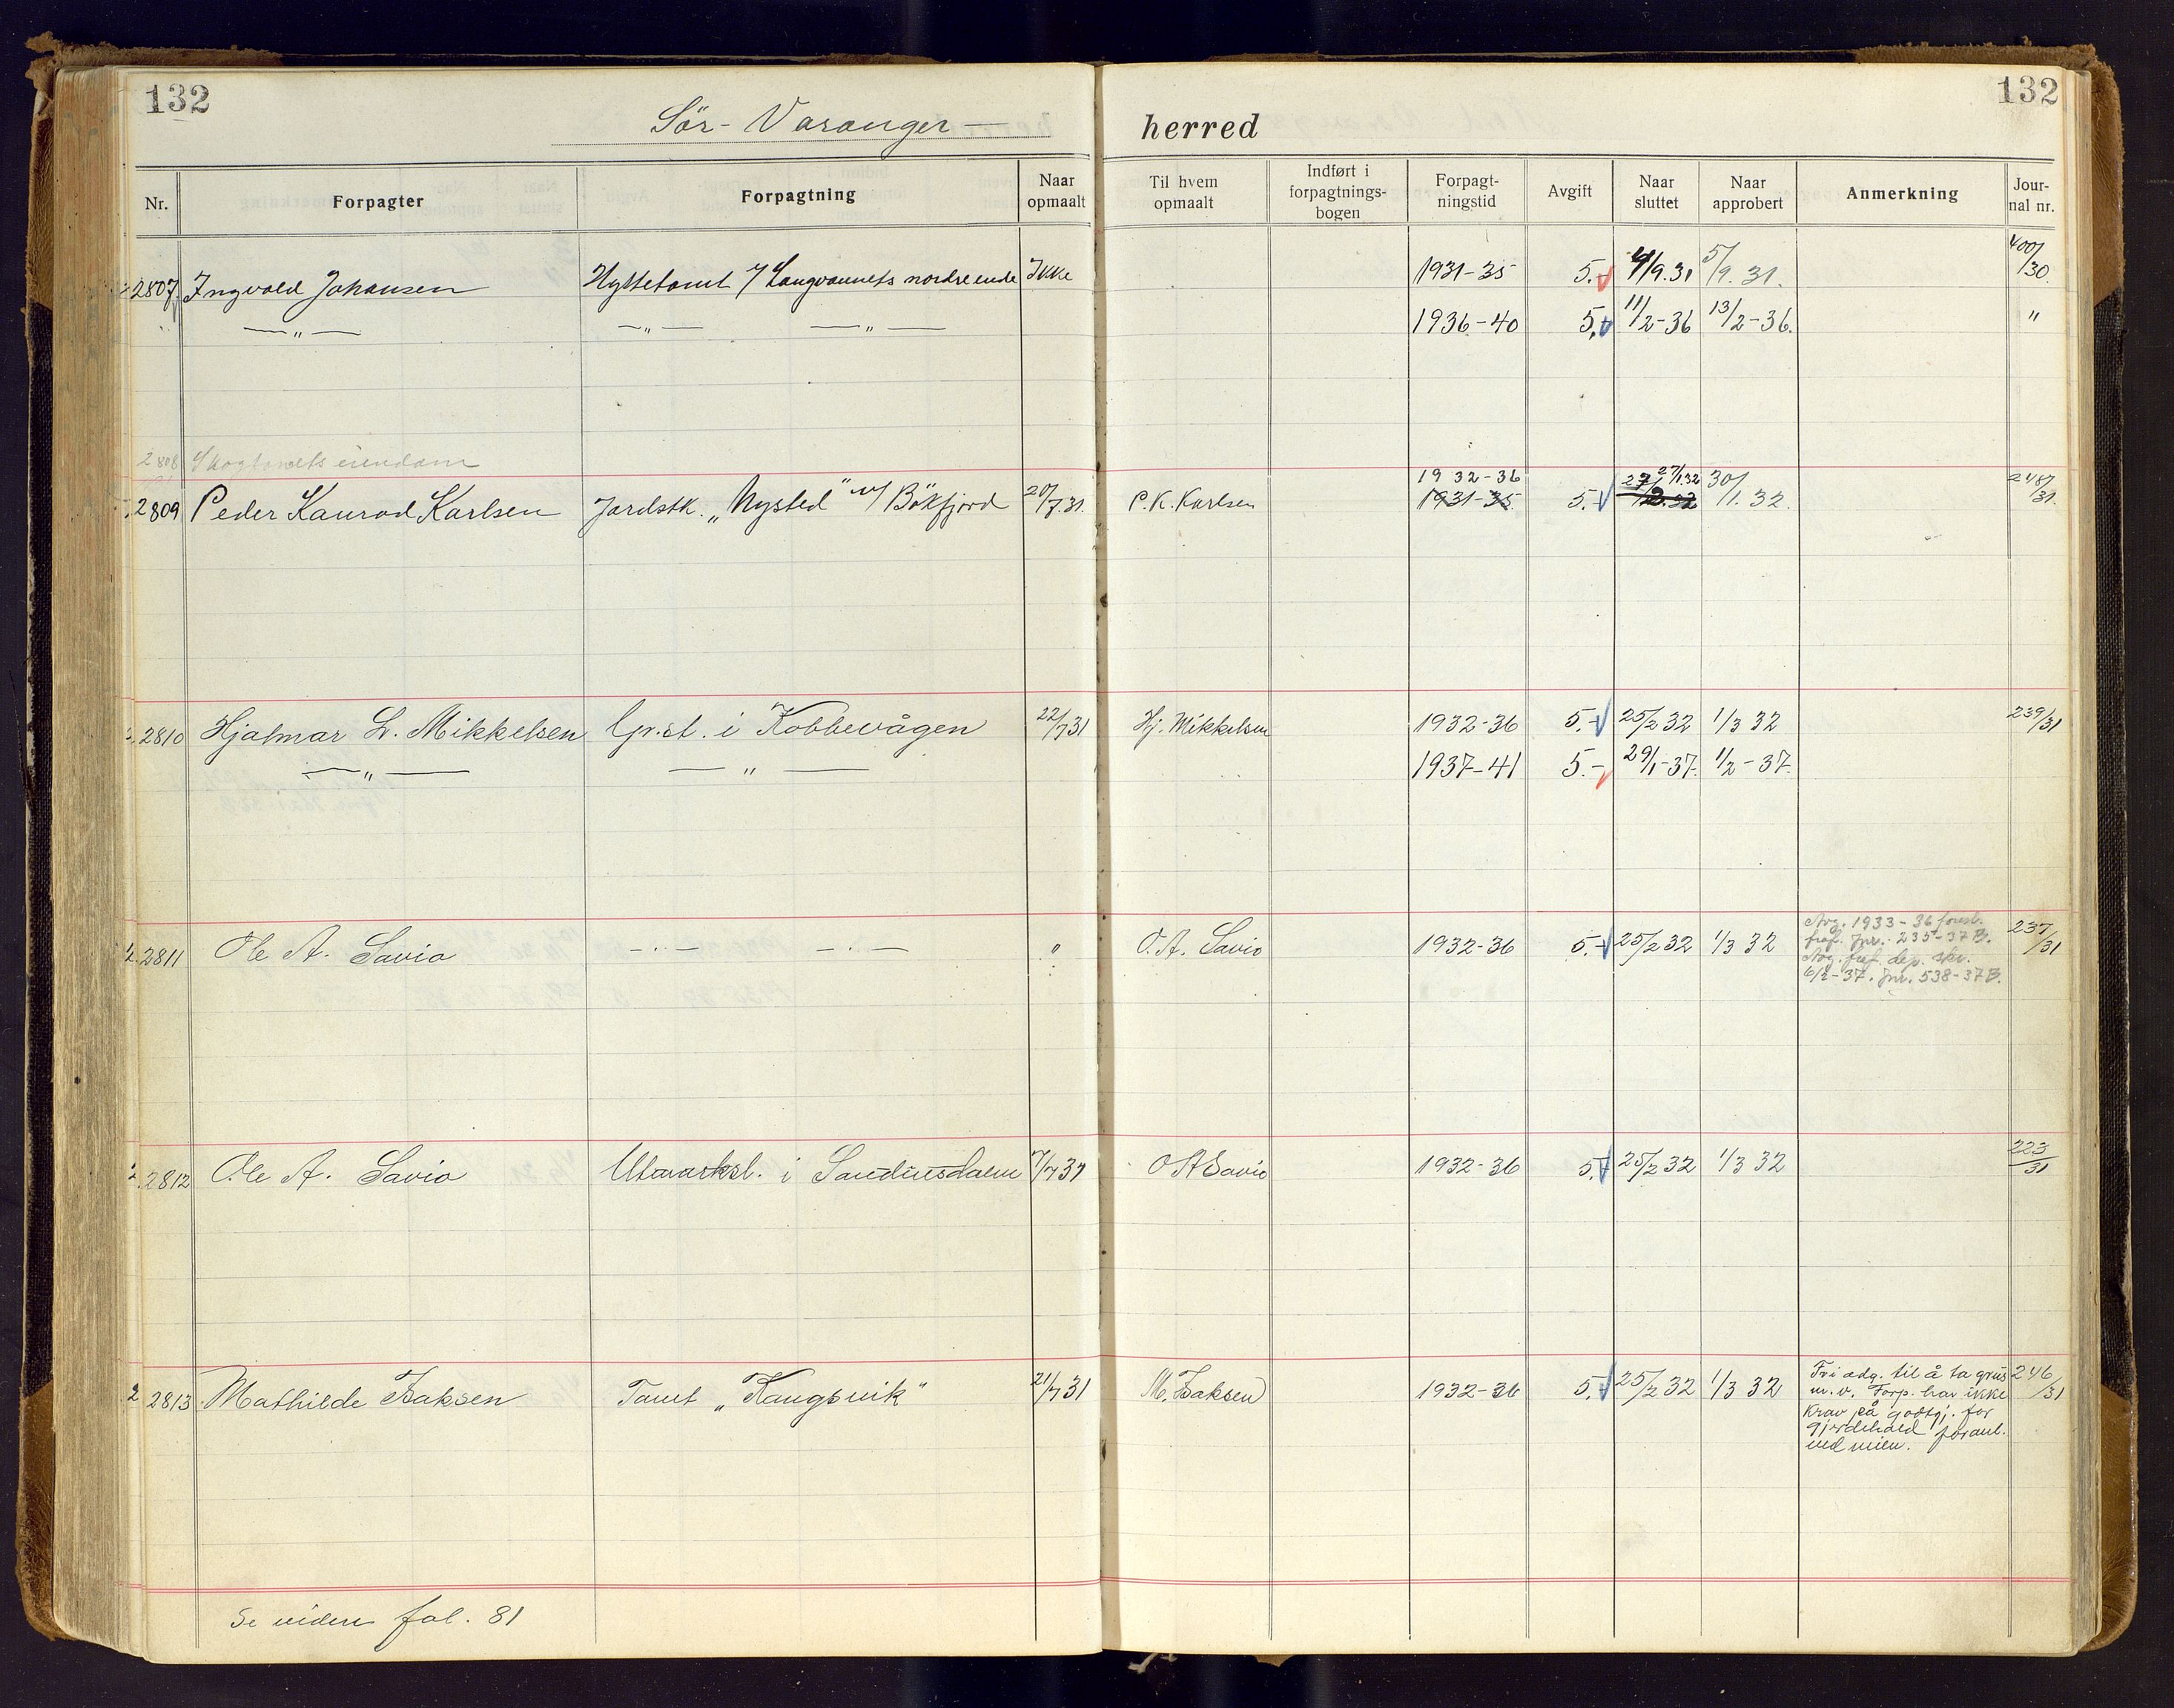 132
132
Sör-Varanger — herred
Nr. Forpagter Forpagtning Naar opmaalt Til hvem opmaalt Indført i forpagtnings-bogen Forpagt-ningstid Avgift Naar sluttet Naar approbert Anmerkning Jour-nal nr.
2807 Ingvald Johansen Hyttetomt v/ Langvannets nordre ende Ikke 1931-35 5.- 4/9.31 5/9.31. 400/30
—„— —„— —„— 1936-40 5,- 11/2-36 13/2-36. "
2808 Skogfondets eiendom
1932-36 27/1.32
2809 Peder Konrad Karlsen Jordstk. „Nysted" v/ Bökfjord 20/7.31. P. K. Karlsen 1931-35 5.- 30/1.32. 248/31.
2810 Hjalmar L. Mikkelsen Gr.st. i Kobbevågen 22/7 31 Hj. Mikkelsen 1932-36 5.- 25/2 32 1/3 32 239/31
—„— —„— 1937-41 5.- 29/1-37. 1/2-37.
2811 Ole A. Savio —.— —.— " O. A. Savio 1932-36 5.- 25/2 32 1/3 32 Avg. 1933-36 237/31
fraf. Jnr. 235-37 B.
Avg. fraf. dep. skr.
6/2-37. Jnr. 538-37 B.
2812 Ole A. Savio Utmarkst. i Sandnesdalen 7/7 31 O A Savio 1932-36 5.- 25/2 32 1/3 32 223/31
2813 Mathilde Isaksen Tomt „Kangsvik" 21/7 31 M. Isaksen 1932-36 5.- 25/2 32 1/3 32 Fri adg. til å ta grus 246/31
m. v. Forp. har ikke
krav på godtgj. for
gjerdehold
Se videre fol. 81